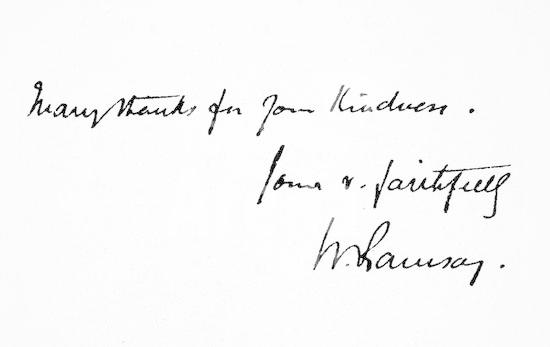 Many thanks for your kindness.
Yours v. faithfully
W. Ramsay.